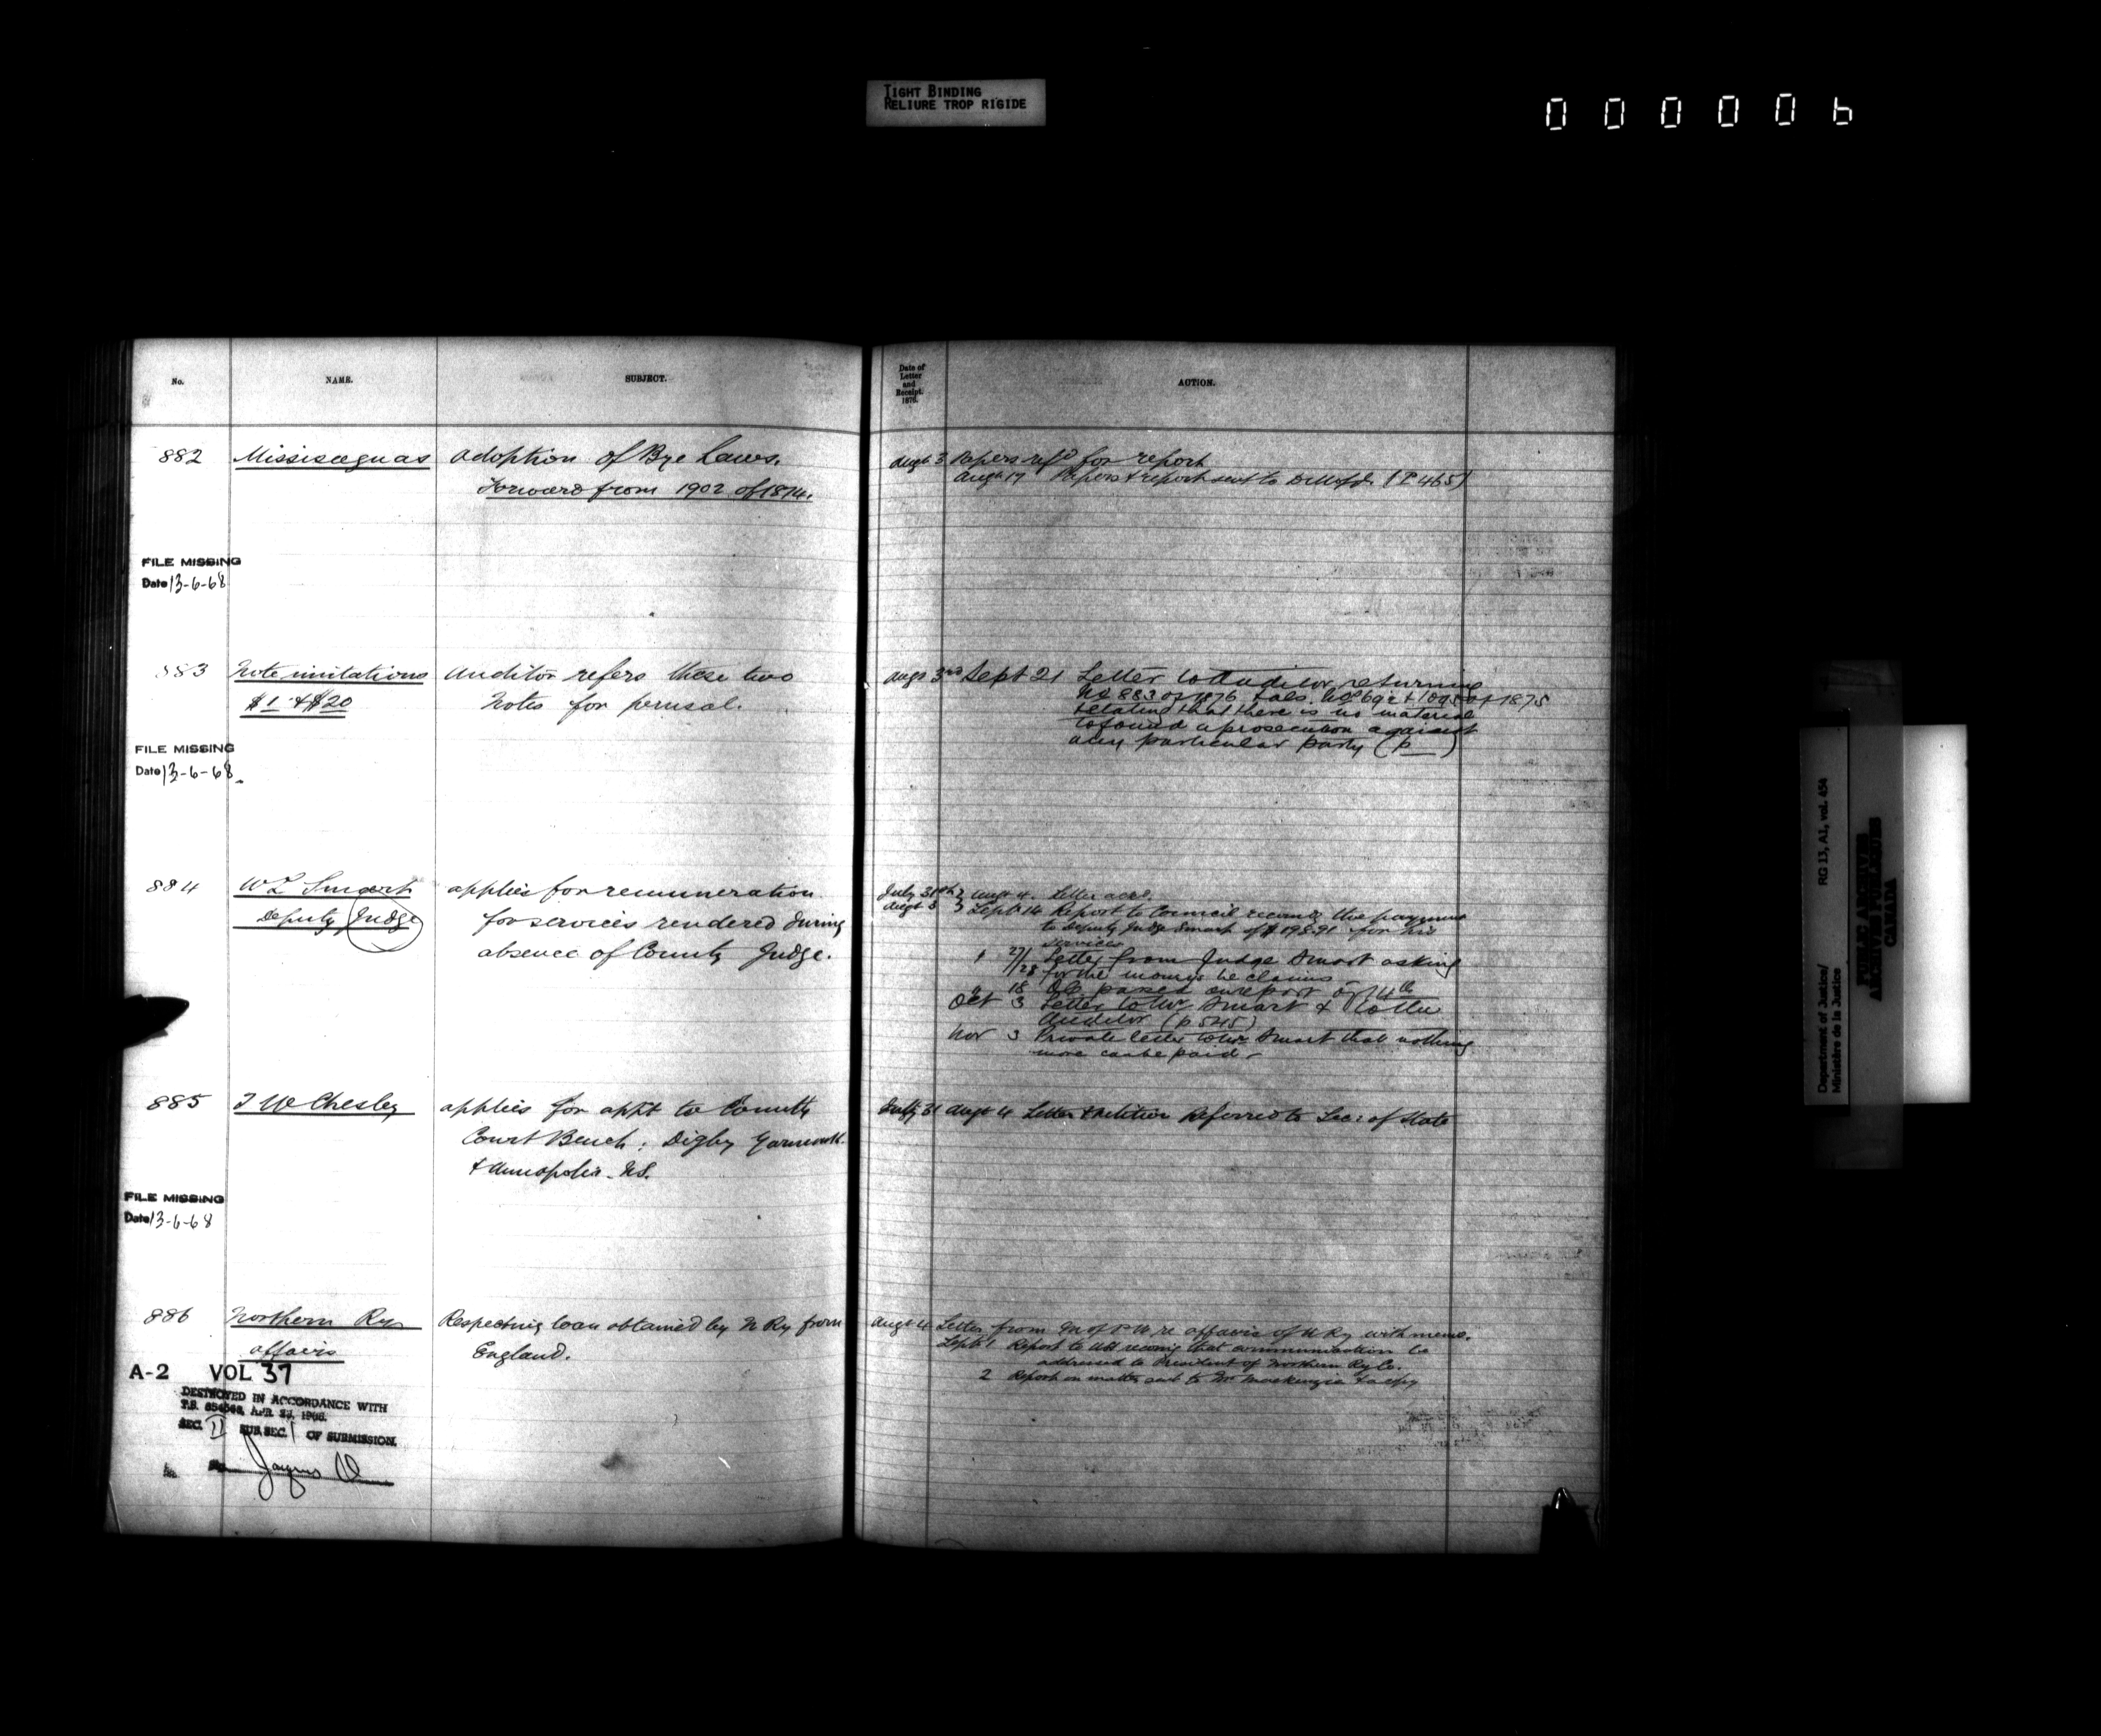 TIGHT BINDING
RELIURE TROP RIGIDE
000006
No.
NAME.
SUBJECT.
Date of
Letter
and
Receipt.
1876.
ACTION.
882
Missisaguas
adoption of Bye Laws.
Forward from 1902 of 1874.
Augt 3 Papers refd for report
Augt 17 Papers & report sent to (P 465)
FILE MISSING
Date 13-6-68
883
Note imitations
$1 & $20
Auditor refers these two
Notes for perusal.
Augt 3rd Sept 21 Letter to Auditor returning
No 883 of 1876 & als. of 1875
stating that there is no material
to found a prosecution against
any particular party (p )
FILE MISSING
Date 13-6-68
884
W L Smart
Deputy Judge
applies for remuneration
for services rendered during
absence of County Judge.
July 31st
Augt 3
Augt 4. Letter ackd.
Sept 14 Report to Council recomg the payment
to Deputy Judge Smart of $198.91 for his
services
27/28 Letter from Judge Smart asking
for the moneys he claims
" 18 O/C passed on report of 14th
Oct 3 Letter to Mr Smart & to the
Auditor (p 545)
Nov 3 Private letter to Mr Smart that nothing
more can be paid
885
T W Chesley
applies for appt to County
Court Bench: Digby Yarmouth
& Annapolis - N.S.
July 31 Augt 4 Letter & petition referred to Sec: of State
FILE MISSING
Date 13-6-68
886
Northern Ry
affairs
Respecting loan obtained by N Ry from
England.
Augt 4 Letter from M of P W re affairs of N Ry with memo.
Sept 1 Report to recomg that communication be
addressed to President of Northern Ry Co.
2 Report on matter sent to Mr Mackenzie & a copy
A-2 VOL 37
DESTROYED IN ACCORDANCE WITH
T.B. APR. 1966
SEC. II SUB.SEC. 1 OF SUBMISSION.
Department of Justice/
Ministère de la Justice
RG 13, A1, vol. 454
PUBLIC ARCHIVES
ARCHIVES PUBLIQUES
CANADA